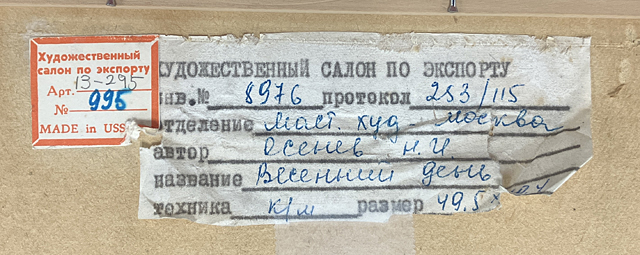 Художественный
салон по экспорту
Арт. 13-295
№ 995
MADE in USS
ХУДОЖЕСТВЕННЫЙ САЛОН ПО ЭКСПОРТУ
инв.№ 8976 протокол 253/115
отделение Маст. худ - Москва
автор Осенев Н.И.
название Весенний день
техника к/м размер 49.5 х